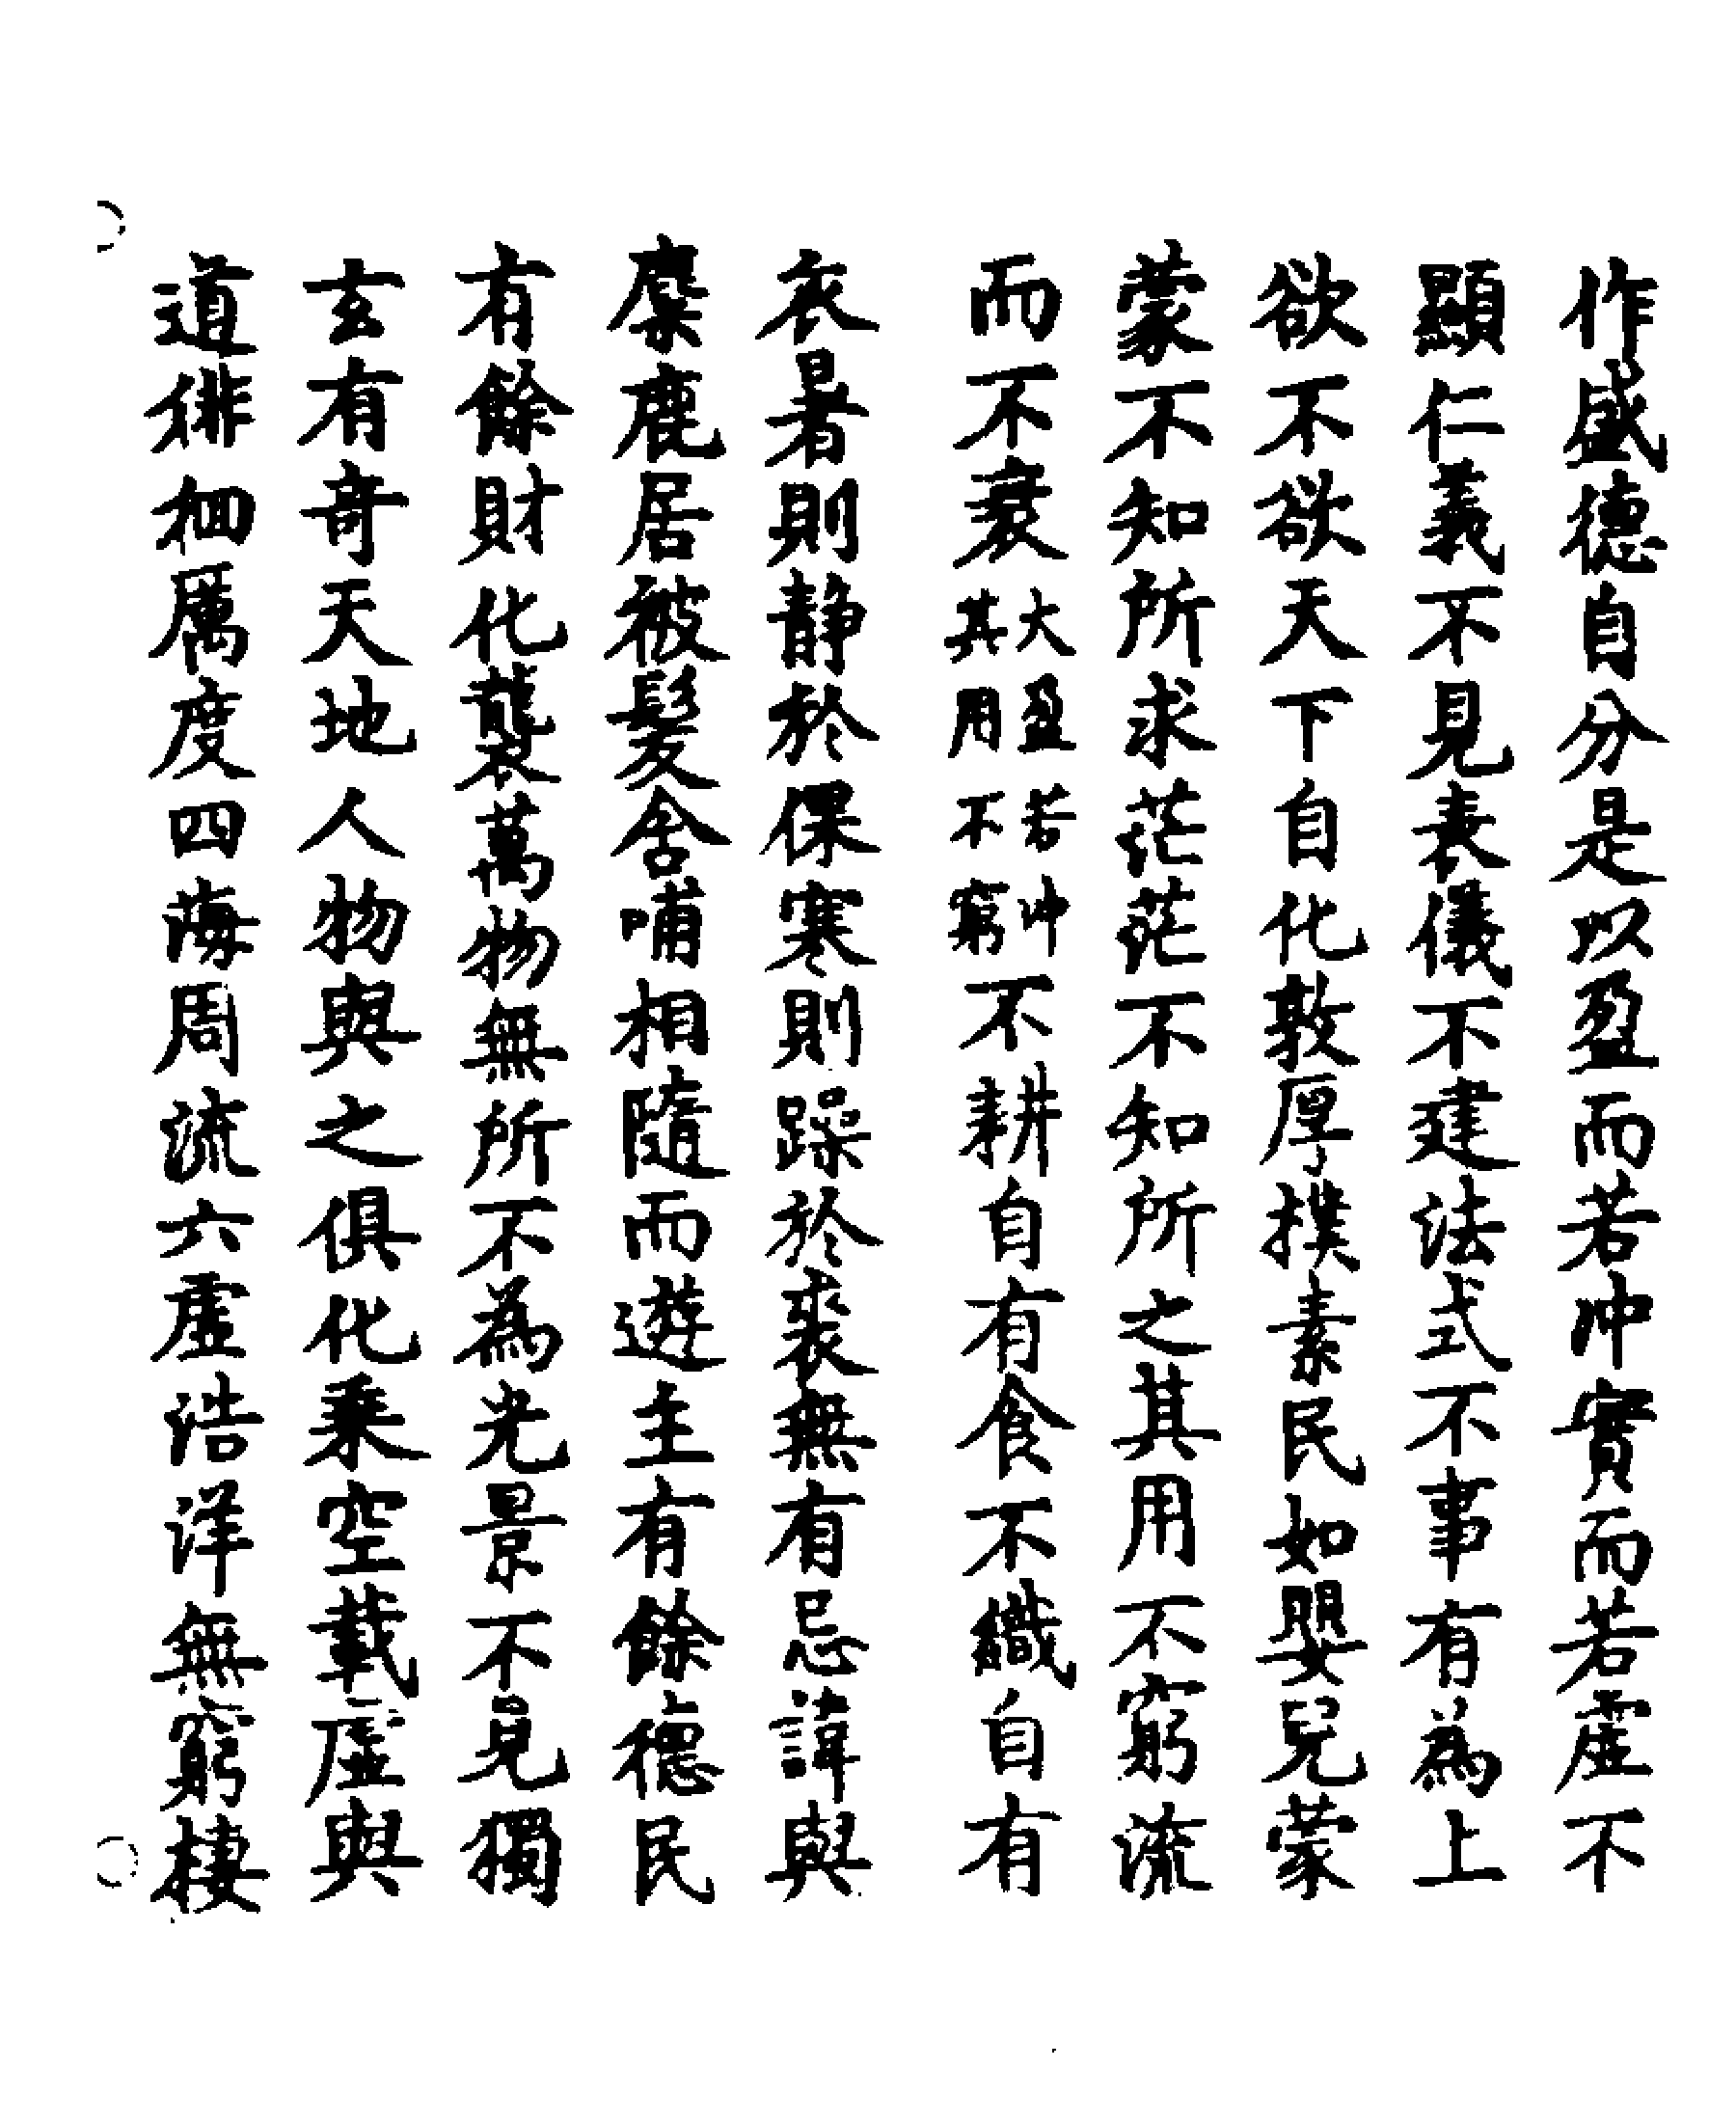 作盛德自分是以盈而若冲實而若虛不
顯仁義不見表儀不建法式不事有為上
欲不欲天下自化敦厚撲素民如嬰兒蒙
蒙不知所求茫茫不知所之其用不窮流
而不衰大盈若冲其用不窮不耕自有食不織自有
衣暑則静於倮寒則躁於裘無有忌諱與
麋鹿居被髮含哺相隨而遊主有餘德民
有餘財化襲萬物無所不為光景不見獨
玄有奇天地人物與之俱化乘空載虛與
道徘徊厲度四海周流六虛浩洋無窮棲